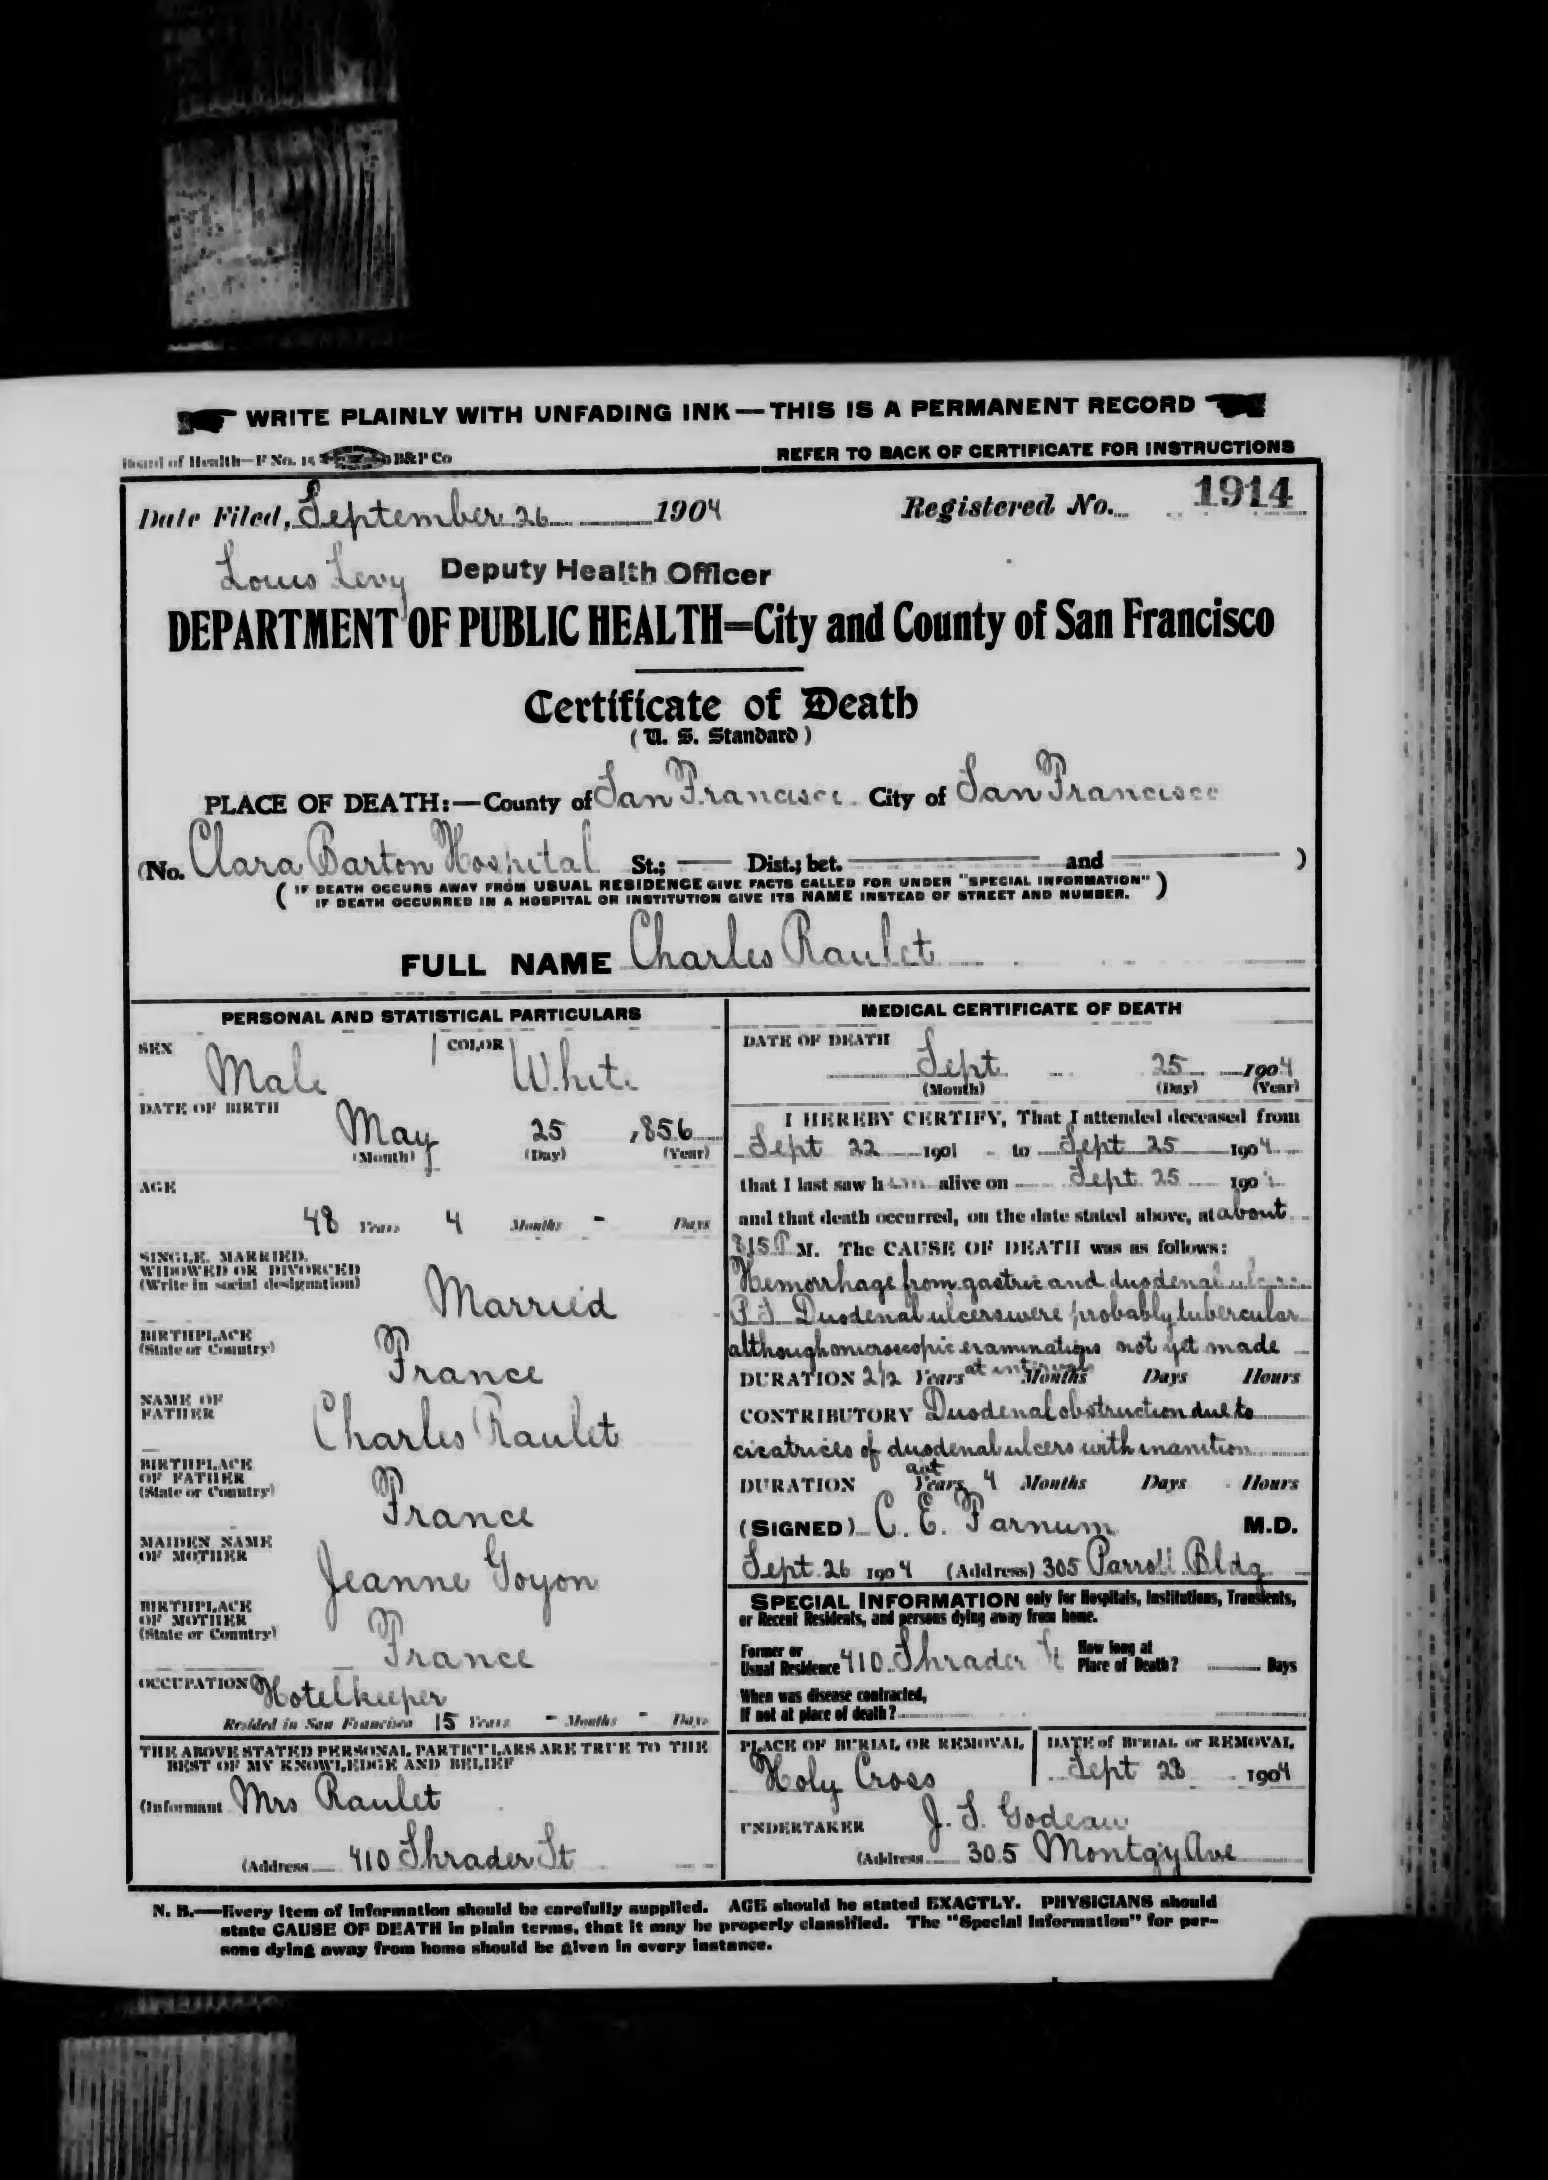 WRITE PLAINLY WITH UNFADING INK — THIS IS A PERMANENT RECORD
Board of Health—F No. 15 B&P Co REFER TO BACK OF CERTIFICATE FOR INSTRUCTIONS
Date Filed, September 26 1904 Registered No. 1914
Louis Levy Deputy Health Officer
DEPARTMENT OF PUBLIC HEALTH=City and County of San Francisco
Certificate of Death
(U. S. Standard)
PLACE OF DEATH:—County of San Francisco City of San Francisco
(No. Clara Barton Hospital St.; — Dist.; bet. — and — )
(IF DEATH OCCURS AWAY FROM USUAL RESIDENCE GIVE FACTS CALLED FOR UNDER "SPECIAL INFORMATION"
IF DEATH OCCURRED IN A HOSPITAL OR INSTITUTION GIVE ITS NAME INSTEAD OF STREET AND NUMBER.)
FULL NAME Charles Raulet
PERSONAL AND STATISTICAL PARTICULARS
SEX Male COLOR White
DATE OF BIRTH
May 25 1856
(Month) (Day) (Year)
AGE
48 Years 4 Months - Days
SINGLE, MARRIED,
WIDOWED OR DIVORCED
(Write in social designation) Married
BIRTHPLACE
(State or Country) France
NAME OF
FATHER Charles Raulet
BIRTHPLACE
OF FATHER
(State or Country) France
MAIDEN NAME
OF MOTHER Jeanne Goyon
BIRTHPLACE
OF MOTHER
(State or Country) France
OCCUPATION Hotelkeeper
Resided in San Francisco 15 Years - Months - Days
THE ABOVE STATED PERSONAL PARTICULARS ARE TRUE TO THE
BEST OF MY KNOWLEDGE AND BELIEF
(Informant Mrs Raulet
(Address 410 Shrader St
MEDICAL CERTIFICATE OF DEATH
DATE OF DEATH
Sept 25 1904
(Month) (Day) (Year)
I HEREBY CERTIFY, That I attended deceased from
Sept 22 1901 to Sept 25 1904
that I last saw him alive on Sept 25 190
and that death occurred, on the date stated above, at about
815 P M. The CAUSE OF DEATH was as follows:
Hemorrhage from gastric and duodenal ulcers
Duodenal ulcers were probably tubercular
although microscopic examinations not yet made
DURATION 2 1/2 Years at intervals Months Days Hours
CONTRIBUTORY Duodenal obstruction due to
cicatrices of duodenal ulcers with inanition
DURATION Years 4 Months Days Hours
(SIGNED) C. E. Farnum M.D.
Sept 26 1904 (Address) 305 Parrott Bldg
SPECIAL INFORMATION only for Hospitals, Institutions, Transients,
or Recent Residents, and persons dying away from home.
Former or
Usual Residence 410 Shrader St How long at
Place of Death? Days
When was disease contracted,
If not at place of death?
PLACE OF BURIAL OR REMOVAL DATE of BURIAL or REMOVAL
Holy Cross Sept 28 1904
UNDERTAKER J. S. Godeau
(Address 305 Montg'y Ave
N. B.—Every item of information should be carefully supplied. AGE should be stated EXACTLY. PHYSICIANS should
state CAUSE OF DEATH in plain terms, that it may be properly classified. The "Special Information" for per-
sons dying away from home should be given in every instance.